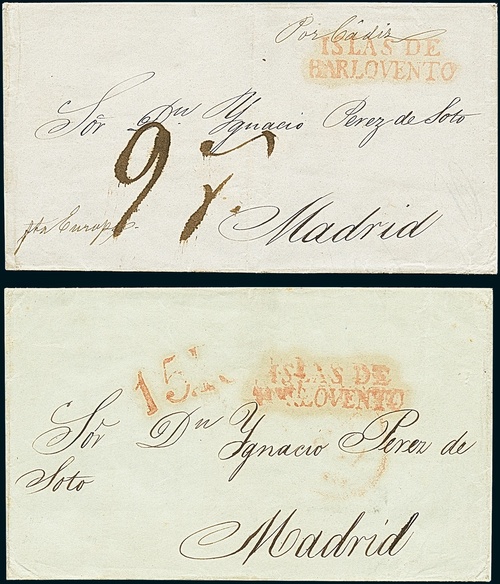 Por Cádiz
ISLAS DE
BARLOVENTO
Sör Dn Ygnacio Perez de Soto
97
pta Europa.
Madrid
15
ISLAS DE
BARLOVENTO
Sör Dn Ygnacio Perez de
Soto
Madrid